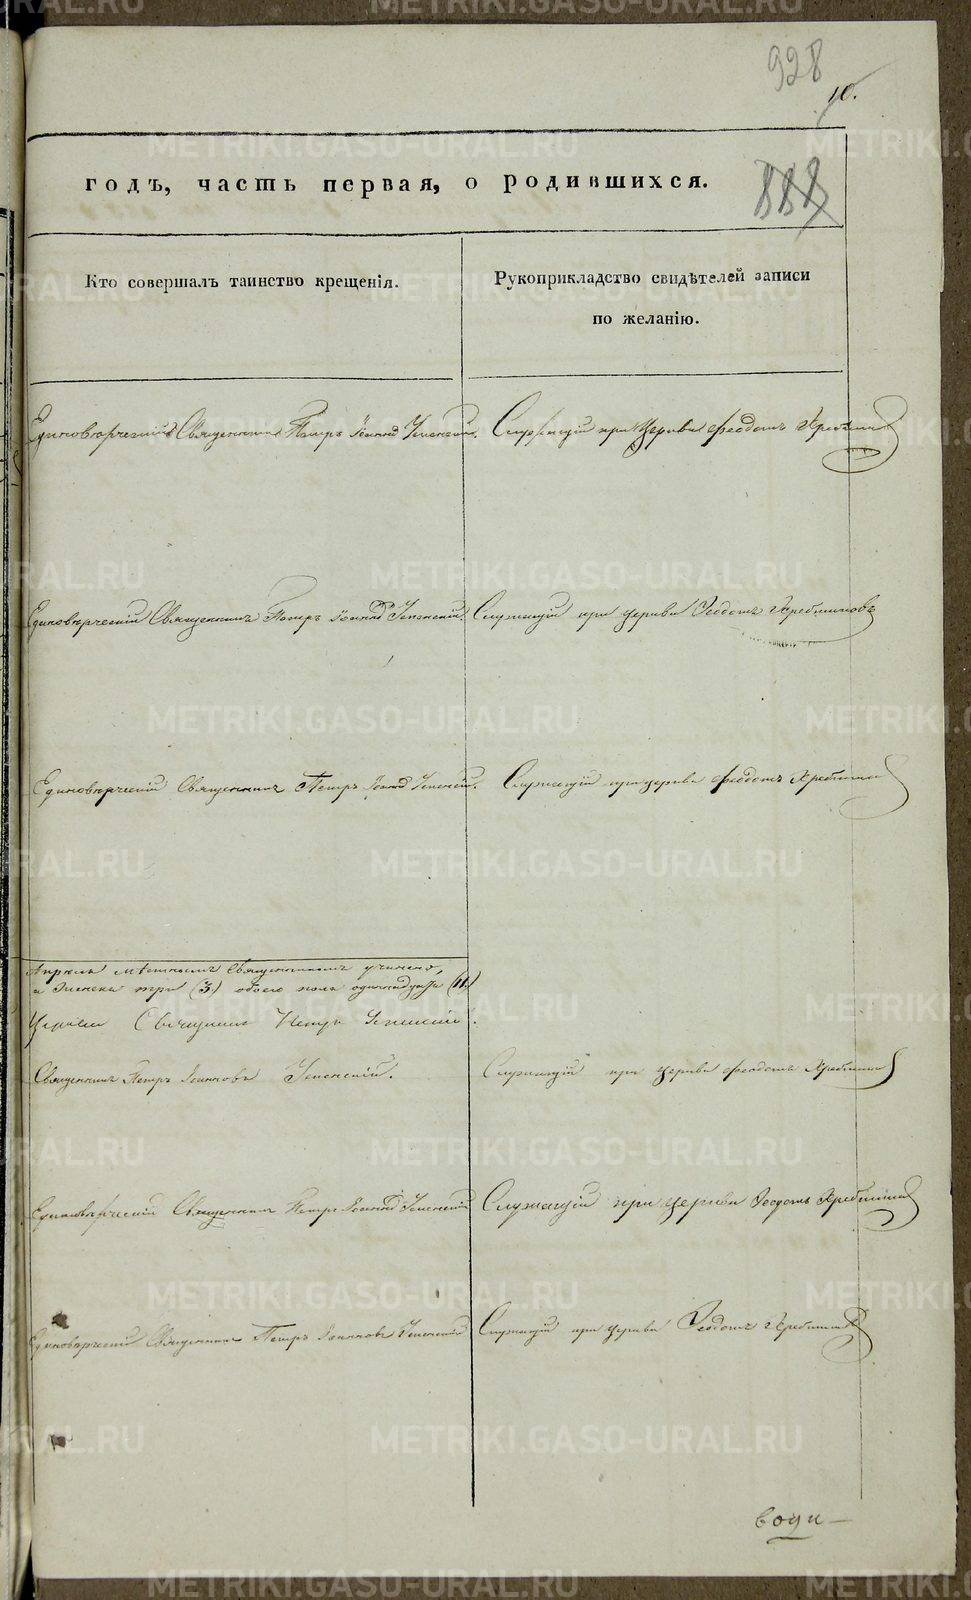 928
10.
годъ, часть первая, о родившихся.
888
Кто совершалъ таинство крещенія.
Рукоприкладство свидѣтелей записи
по желанію.
Единовѣрческій Священникъ Петръ Іоанновъ Успенскій.
Служащій при Церкви Феодотъ
Единовѣрческій Священникъ Петръ Іоанновъ Успенскій.
Служащій при церкви Феодотъ
Единовѣрческій Священникъ Петръ Іоанновъ Успенскій.
Служащій при церкви Феодотъ
Апрѣль мѣстнымъ Священникомъ учинено,
и женска три (3.) обоего пола одинадцать (11.)
Церкви Священникъ Петръ Успенскій.
Священникъ Петръ Іоанновъ Успенскій.
Служащій при церкви Феодотъ
Единовѣрческій Священникъ Петръ Іоанновъ Успенскій
Служащій при церкви Феодотъ
Единовѣрческій Священникъ Петръ Іоанновъ Успенскій
Служащій при церкви Феодотъ
METRIKI.GASO-URAL.RU